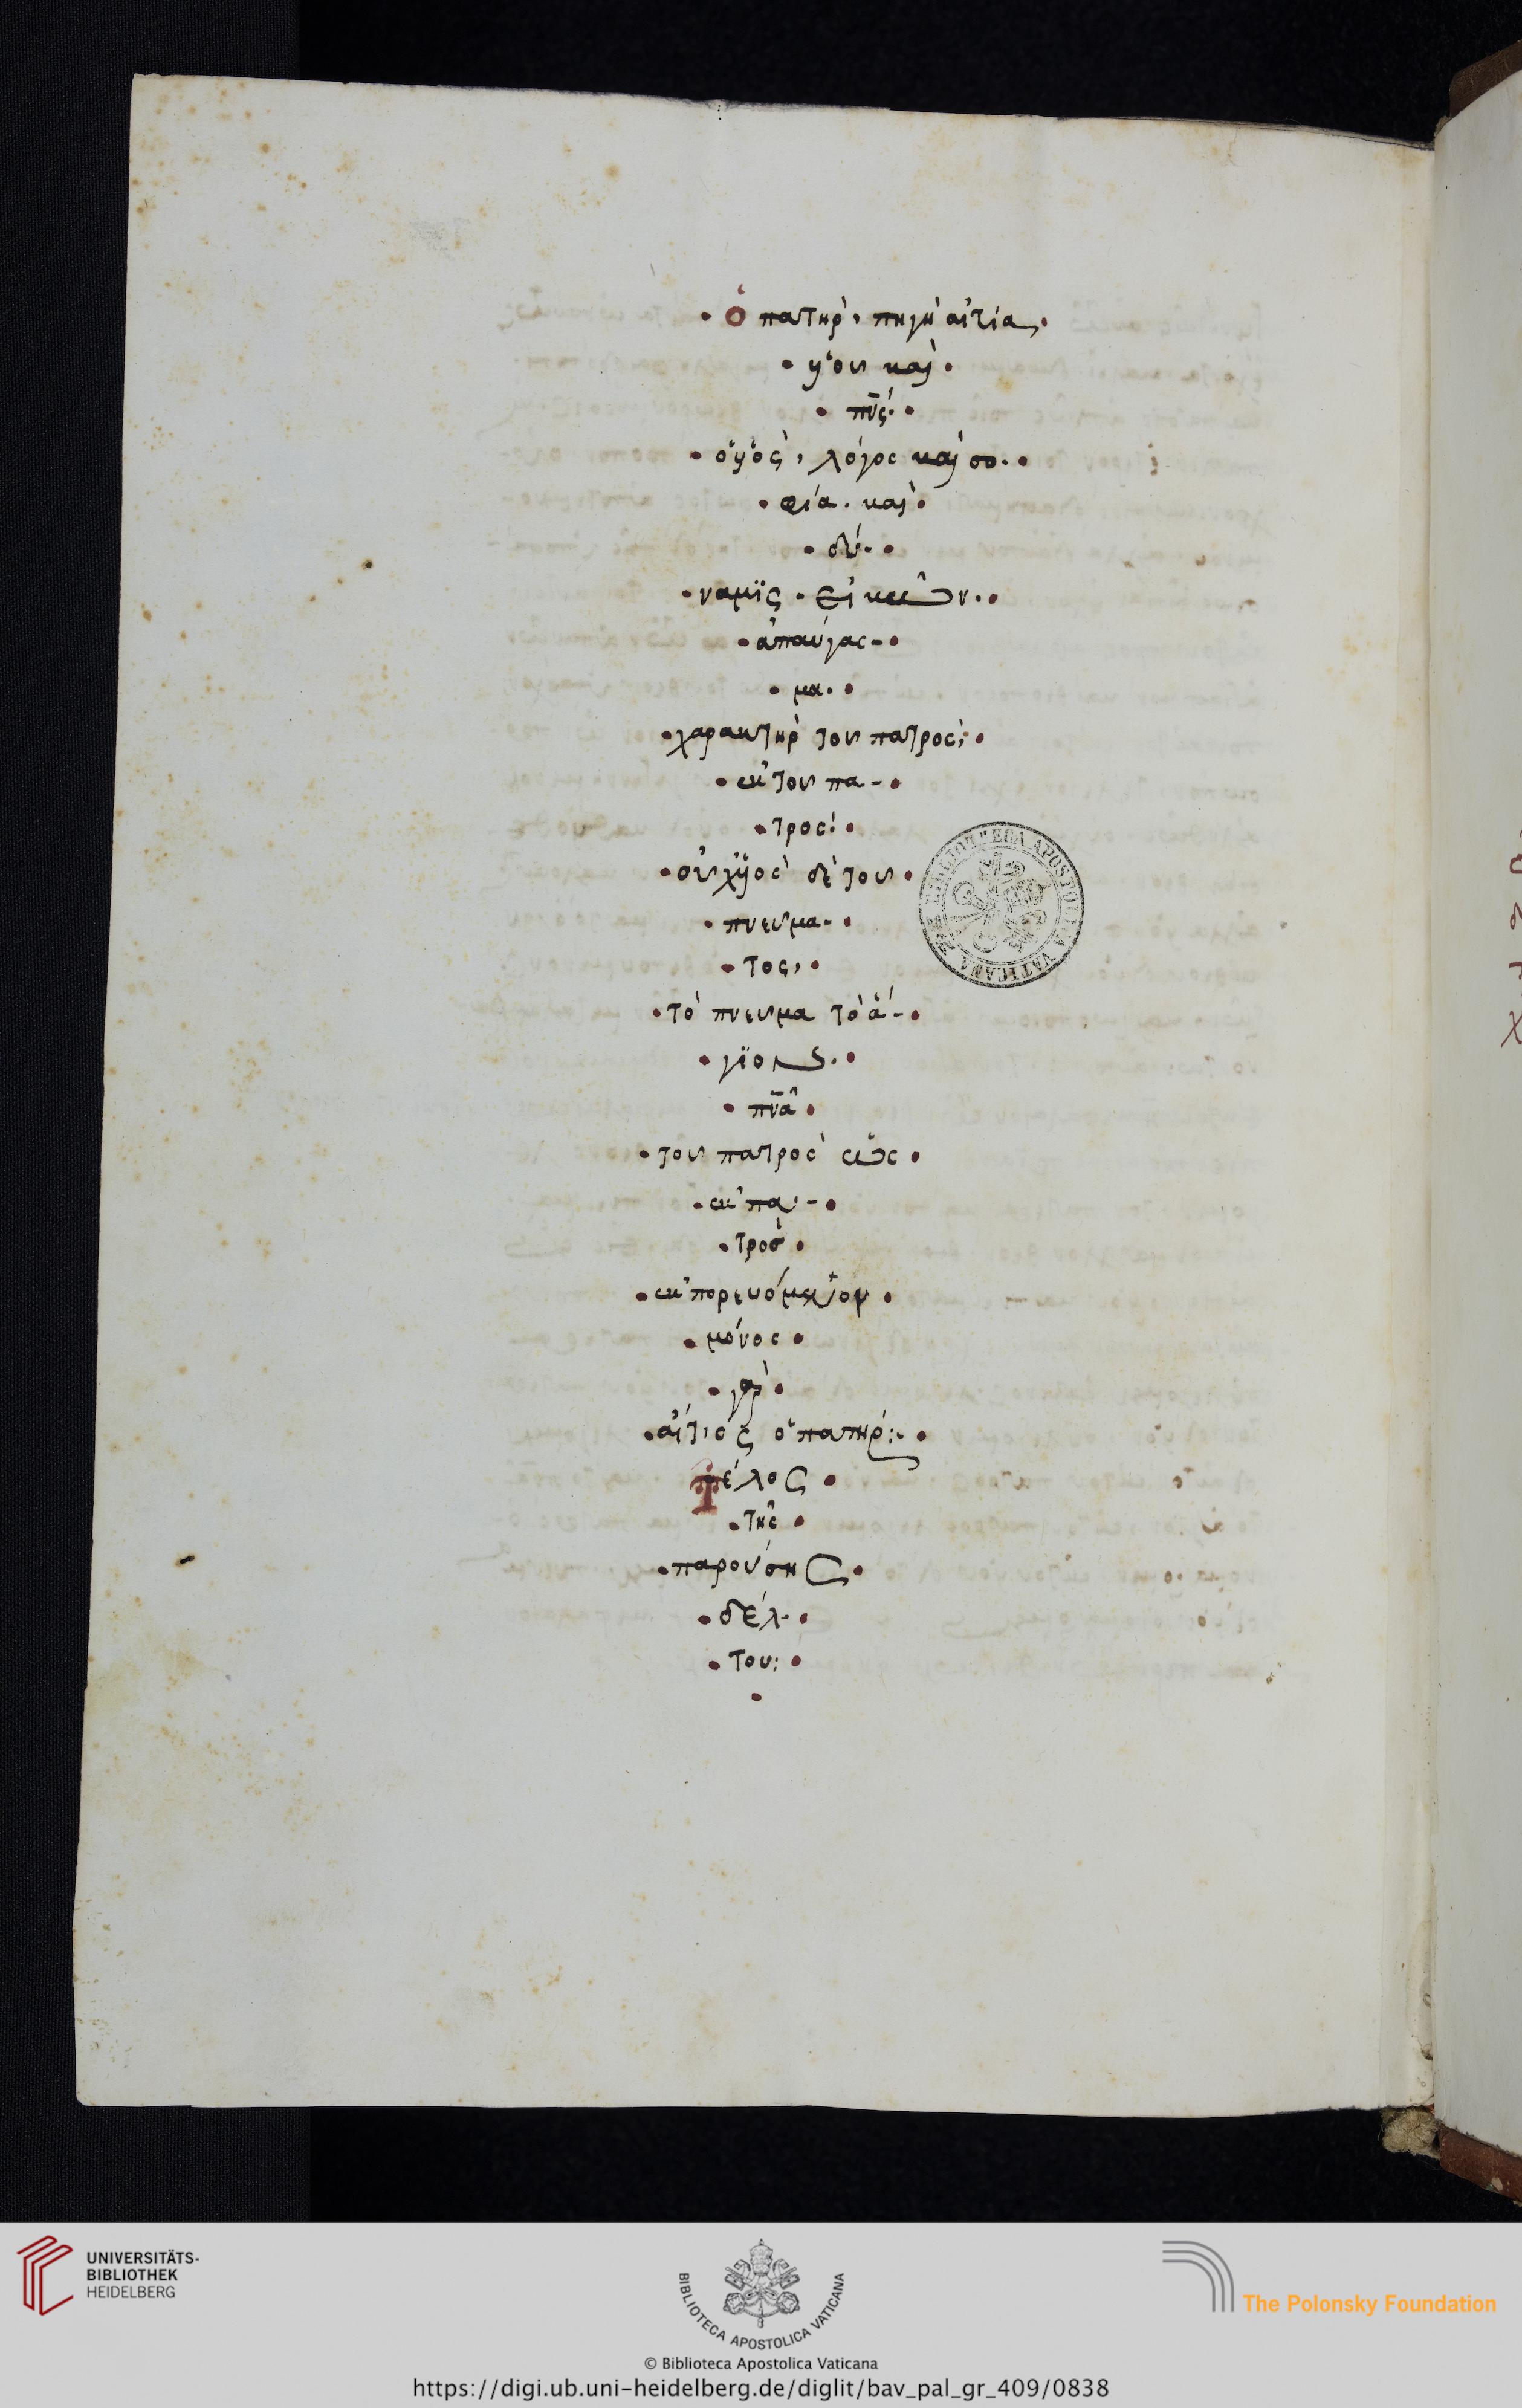 · Ὁ πατὴρ, πηγὴ αἰτία ·
· ὑου καὶ ·
· πν̅ς· ·
· ὁ ὑὸς, λόγος καὶ σο- ·
· φία. καὶ ·
· δύ- ·
· ναμϊς. εἰκὼν. ·
· ἀπαύγας- ·
· μα. ·
· χαρακτὴρ του πατρος; ·
· ἐκ του πα- ·
· τρος: ·
· οὐχ ὑὸς δὲ του ·
· πνευμα- ·
· τος, ·
· τὸ πνευμα τὸ ἅ- ·
· γϊον. ·
· πν̅α ·
· του πατρὸς ὡς ·
· ἐκ πα- ·
· τροσ ·
· ἐκπορευόμενον ·
· μόνος ·
· γὰρ ·
· αἴτιος ὁ πατήρ:- ·
Τέλος ·
· τῆς ·
· παρούσης ·
· δέλ- ·
· του: ·
BIBLIOTECA APOSTOLICA VATICANA
UNIVERSITÄTS-
BIBLIOTHEK
HEIDELBERG
BIBLIOTECA APOSTOLICA VATICANA
The Polonsky Foundation
© Biblioteca Apostolica Vaticana
https://digi.ub.uni-heidelberg.de/diglit/bav_pal_gr_409/0838